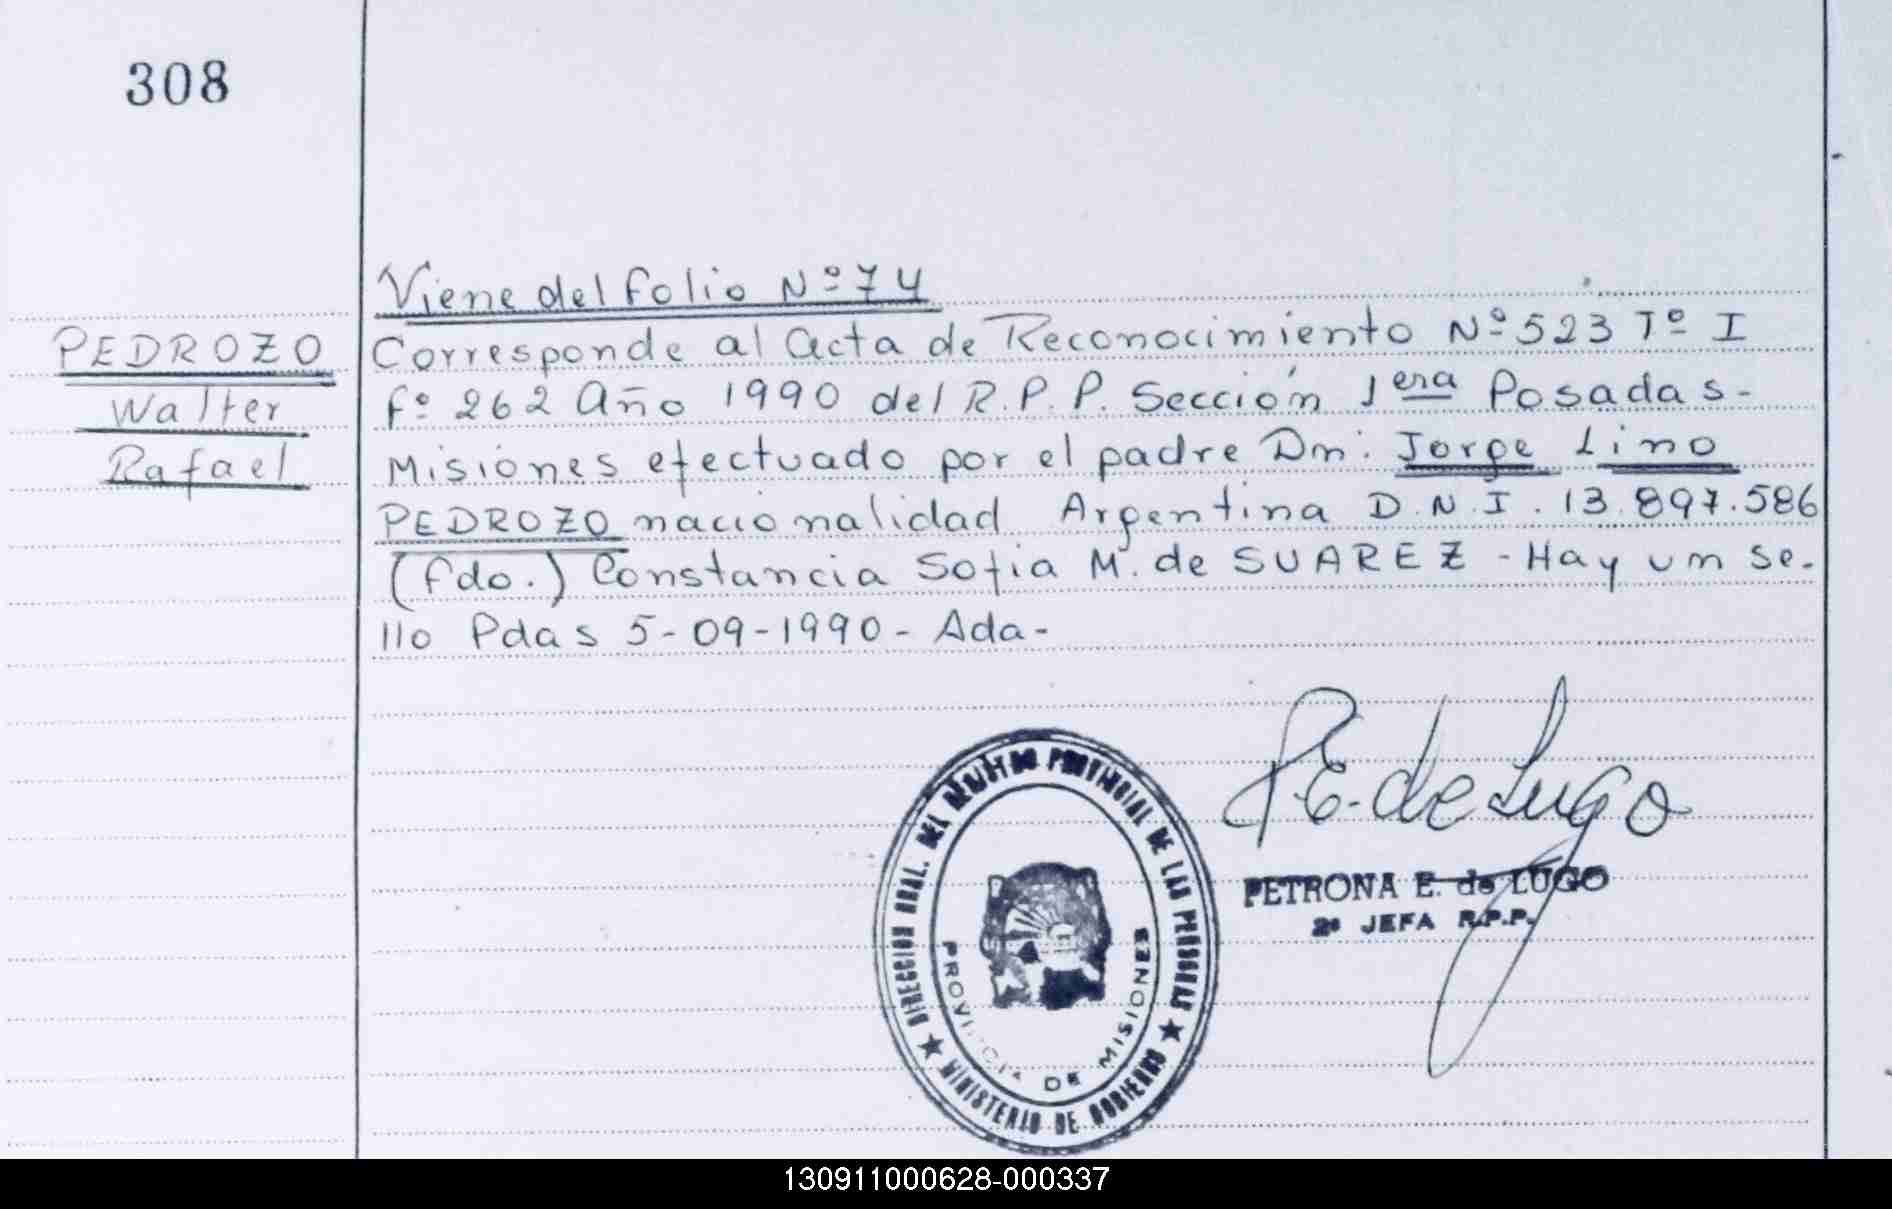 308
Viene del folio Nº 74
PEDROZO
Walter
Rafael
Corresponde al acta de Reconocimiento Nº 523 Tº I
fº 262 Año 1990 del R.P.P. Sección 1era Posadas-
Misiones efectuado por el padre Dn: Jorge Lino
PEDROZO nacionalidad Argentina D.N.I. 13.897.586
(fdo.) Constancia Sofia M. de SUAREZ - Hay un se-
llo Pdas 5-09-1990- Ada-
P.E. de Lugo
PETRONA E. de LUGO
2ª JEFA R.P.P.
DIRECCION GRAL. DEL REGISTRO PROVINCIAL DE LAS PERSONAS
MINISTERIO DE GOBIERNO
PROVINCIA DE MISIONES
130911000628-000337